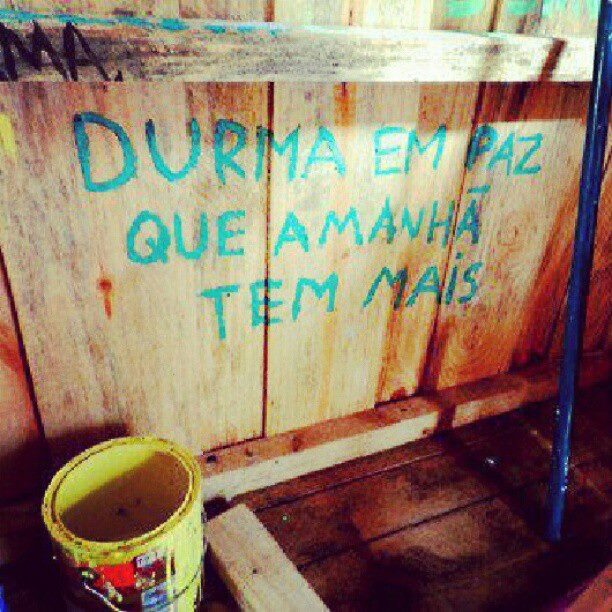 MA.
DURMA EM PAZ
QUE AMANHÃ
TEM MAIS